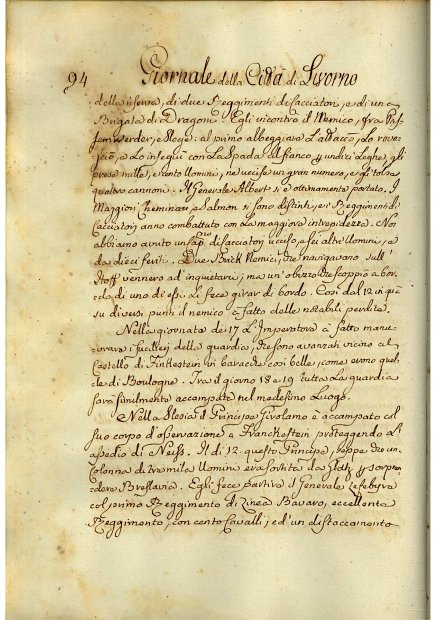 94 Giornale della Città di Livorno
della riserva, di due Reggimenti di Cacciatori, e di una
Brigata di Dragoni. Egli incontrò il Nemico, fra
al primo albeggiare L'attaccò, Lo rove-
sciò, e Lo inseguì con La Spada al fianco undici Leghe, gli
prese mille, e cento Uomini, ne uccise un gran numero, e gi tolse
quattro cannoni. Il Generale Albert si è ottimamente portato. I
Maggiori Salmon si sono distinti, e i Reggimenti di
Cacciatori anno combattuto con La maggiore intrepidezza. Noi
abbiamo avuto un di Cacciatori ucciso, e sei altri Uomini, e
da dieci feriti. Due Brick Nemici, che navigavano sull'
Haff vennero ad inquietarci, ma un'obizzo che scoppiò a bor-
do di uno di essi Li fece girar di bordo. Così dal 12 in quà
su diversi punti il nemico à fatto delle notabili perdite.
Nella giornata de 17 L'Imperatore à fatto mano-
vrare i fucilieri della guardia, che sono avanzati vicino al
Castello di Finkestein in baracche così belle, come erano quel-
le di Boulogne. Tra il giorno 18 e 19 tutta La guardia
sarà similmente accampata nel medesimo Luogo.
Nella Slesia il Principe Girolamo è accampato col
suo corpo d'osservazione a Franckestein proteggendo L'
assedio di Neiss. Il dì 12 questo Principe, seppe che una
Colonna di tremila Uomini era sortita da Glatz sorpren-
dere Breslavia. Egli fece partire il Generale Lefebvre
col primo Reggimento di Linea Bavaro, eccellente
Reggimento, con cento Cavalli, ed un distaccamento